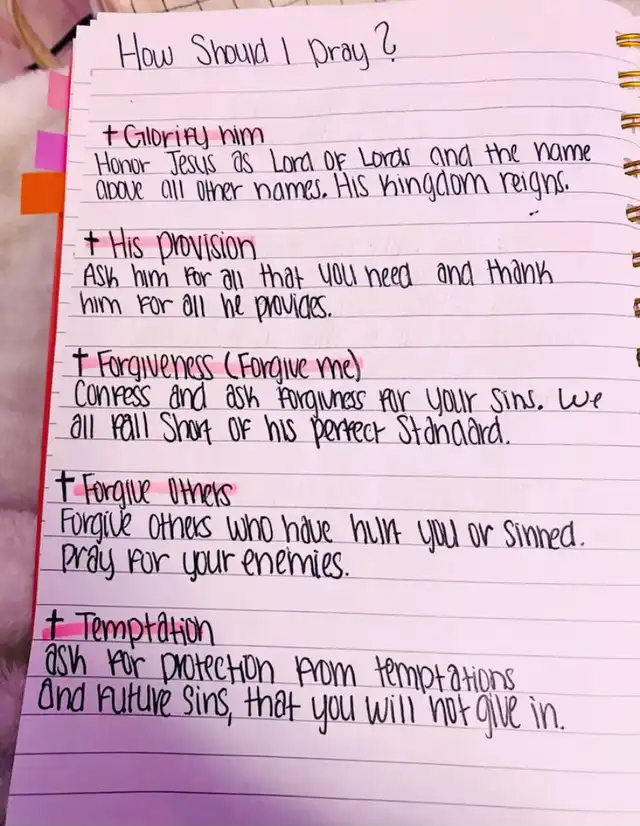 How Should I pray?
† Glorify him
Honor Jesus as Lord of Lords and the name
above all other names. His kingdom reigns.
† His provision
Ask him for all that you need and thank
him for all he provides.
† Forgiveness (Forgive me)
Confess and ask forgivness for your sins. We
all fall Short of his perfect Standard.
† Forgive Others
Forgive others who have hurt you or sinned.
pray for your enemies.
† Temptation
ask for protection from temptations
and future sins, that you will not give in.